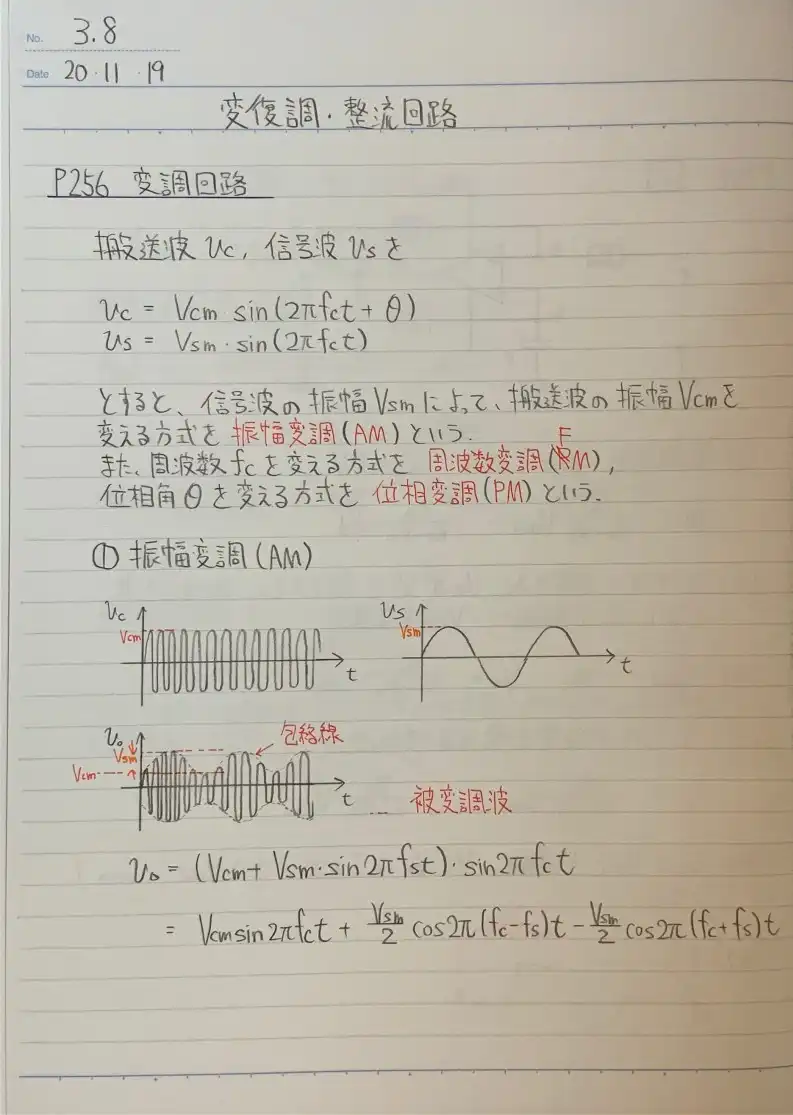 No. 3.8
Date 20・11・19
変復調・整流回路
P256 変調回路
搬送波 υc, 信号波 υsを
υc = Vcm sin(2πfct + θ)
υs = Vsm・sin(2πfct)
とすると、信号波の振幅Vsmによって、搬送波の振幅Vcmを
変える方式を 振幅変調(AM)という.
また、周波数fcを変える方式を 周波数変調(FM),
位相角θを変える方式を 位相変調(PM)という.
① 振幅変調(AM)
υc
Vcm
t
υs
Vsm
t
υo
Vsm
Vcm
包絡線
t
… 被変調波
υo = (Vcm + Vsm・sin2πfst)・sin2πfct
= Vcmsin2πfct + Vsm/2 cos2π(fc-fs)t - Vsm/2 cos2π(fc+fs)t